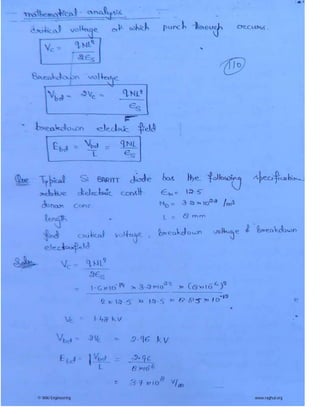 mathematical analysis
critical voltage at which punch through occurs.
Vc = qNL²
2Es
110
Breakdown voltage
Vbd = 2Vc = qNL²
Es
breakdown electric field
Ebd = Vbd = qNL
L Es
Que Typical Si BARITT diode has the following specification
relative dielectric const
donor conc
length
find critical voltage, breakdown voltage & breakdown
electric field
Soln Vc = qNL²
2Es
Vbd = 2Vc = 2.96 kV
Ebd = Vbd = 2.96
L
© Wiki Engineering www.raghul.org